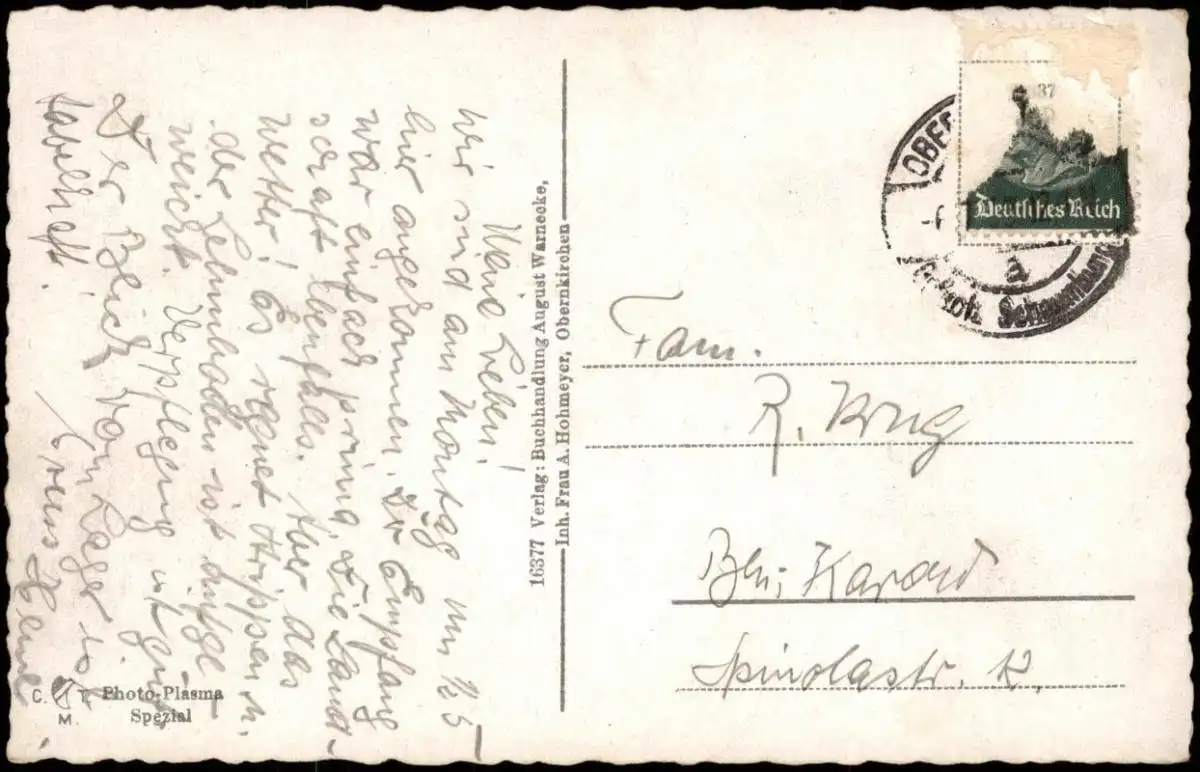 Meine Lieben!
Wir sind am Montag um ½ 5
hier angekommen. Der Empfang
war einfach prima, die Land-
schaft ebenfalls. Aber das
Wetter! Es regnet Strippen u.
der Lehmboden ist aufge-
weicht. Verpflegung ist gut,
Der Blick vom Lager ist
fabelhaft.
Gruss
16377 Verlag: Buchhandlung August Warnecke,
Inh. Frau A. Hohmeyer, Obernkirchen
C. T.
M.
Photo-Plasma
Spezial
37
Deutsches Reich
OBER
-6.
a
Schaumburg
Fam.
R. Krug
Bln. Karow
Spinolastr. 12.